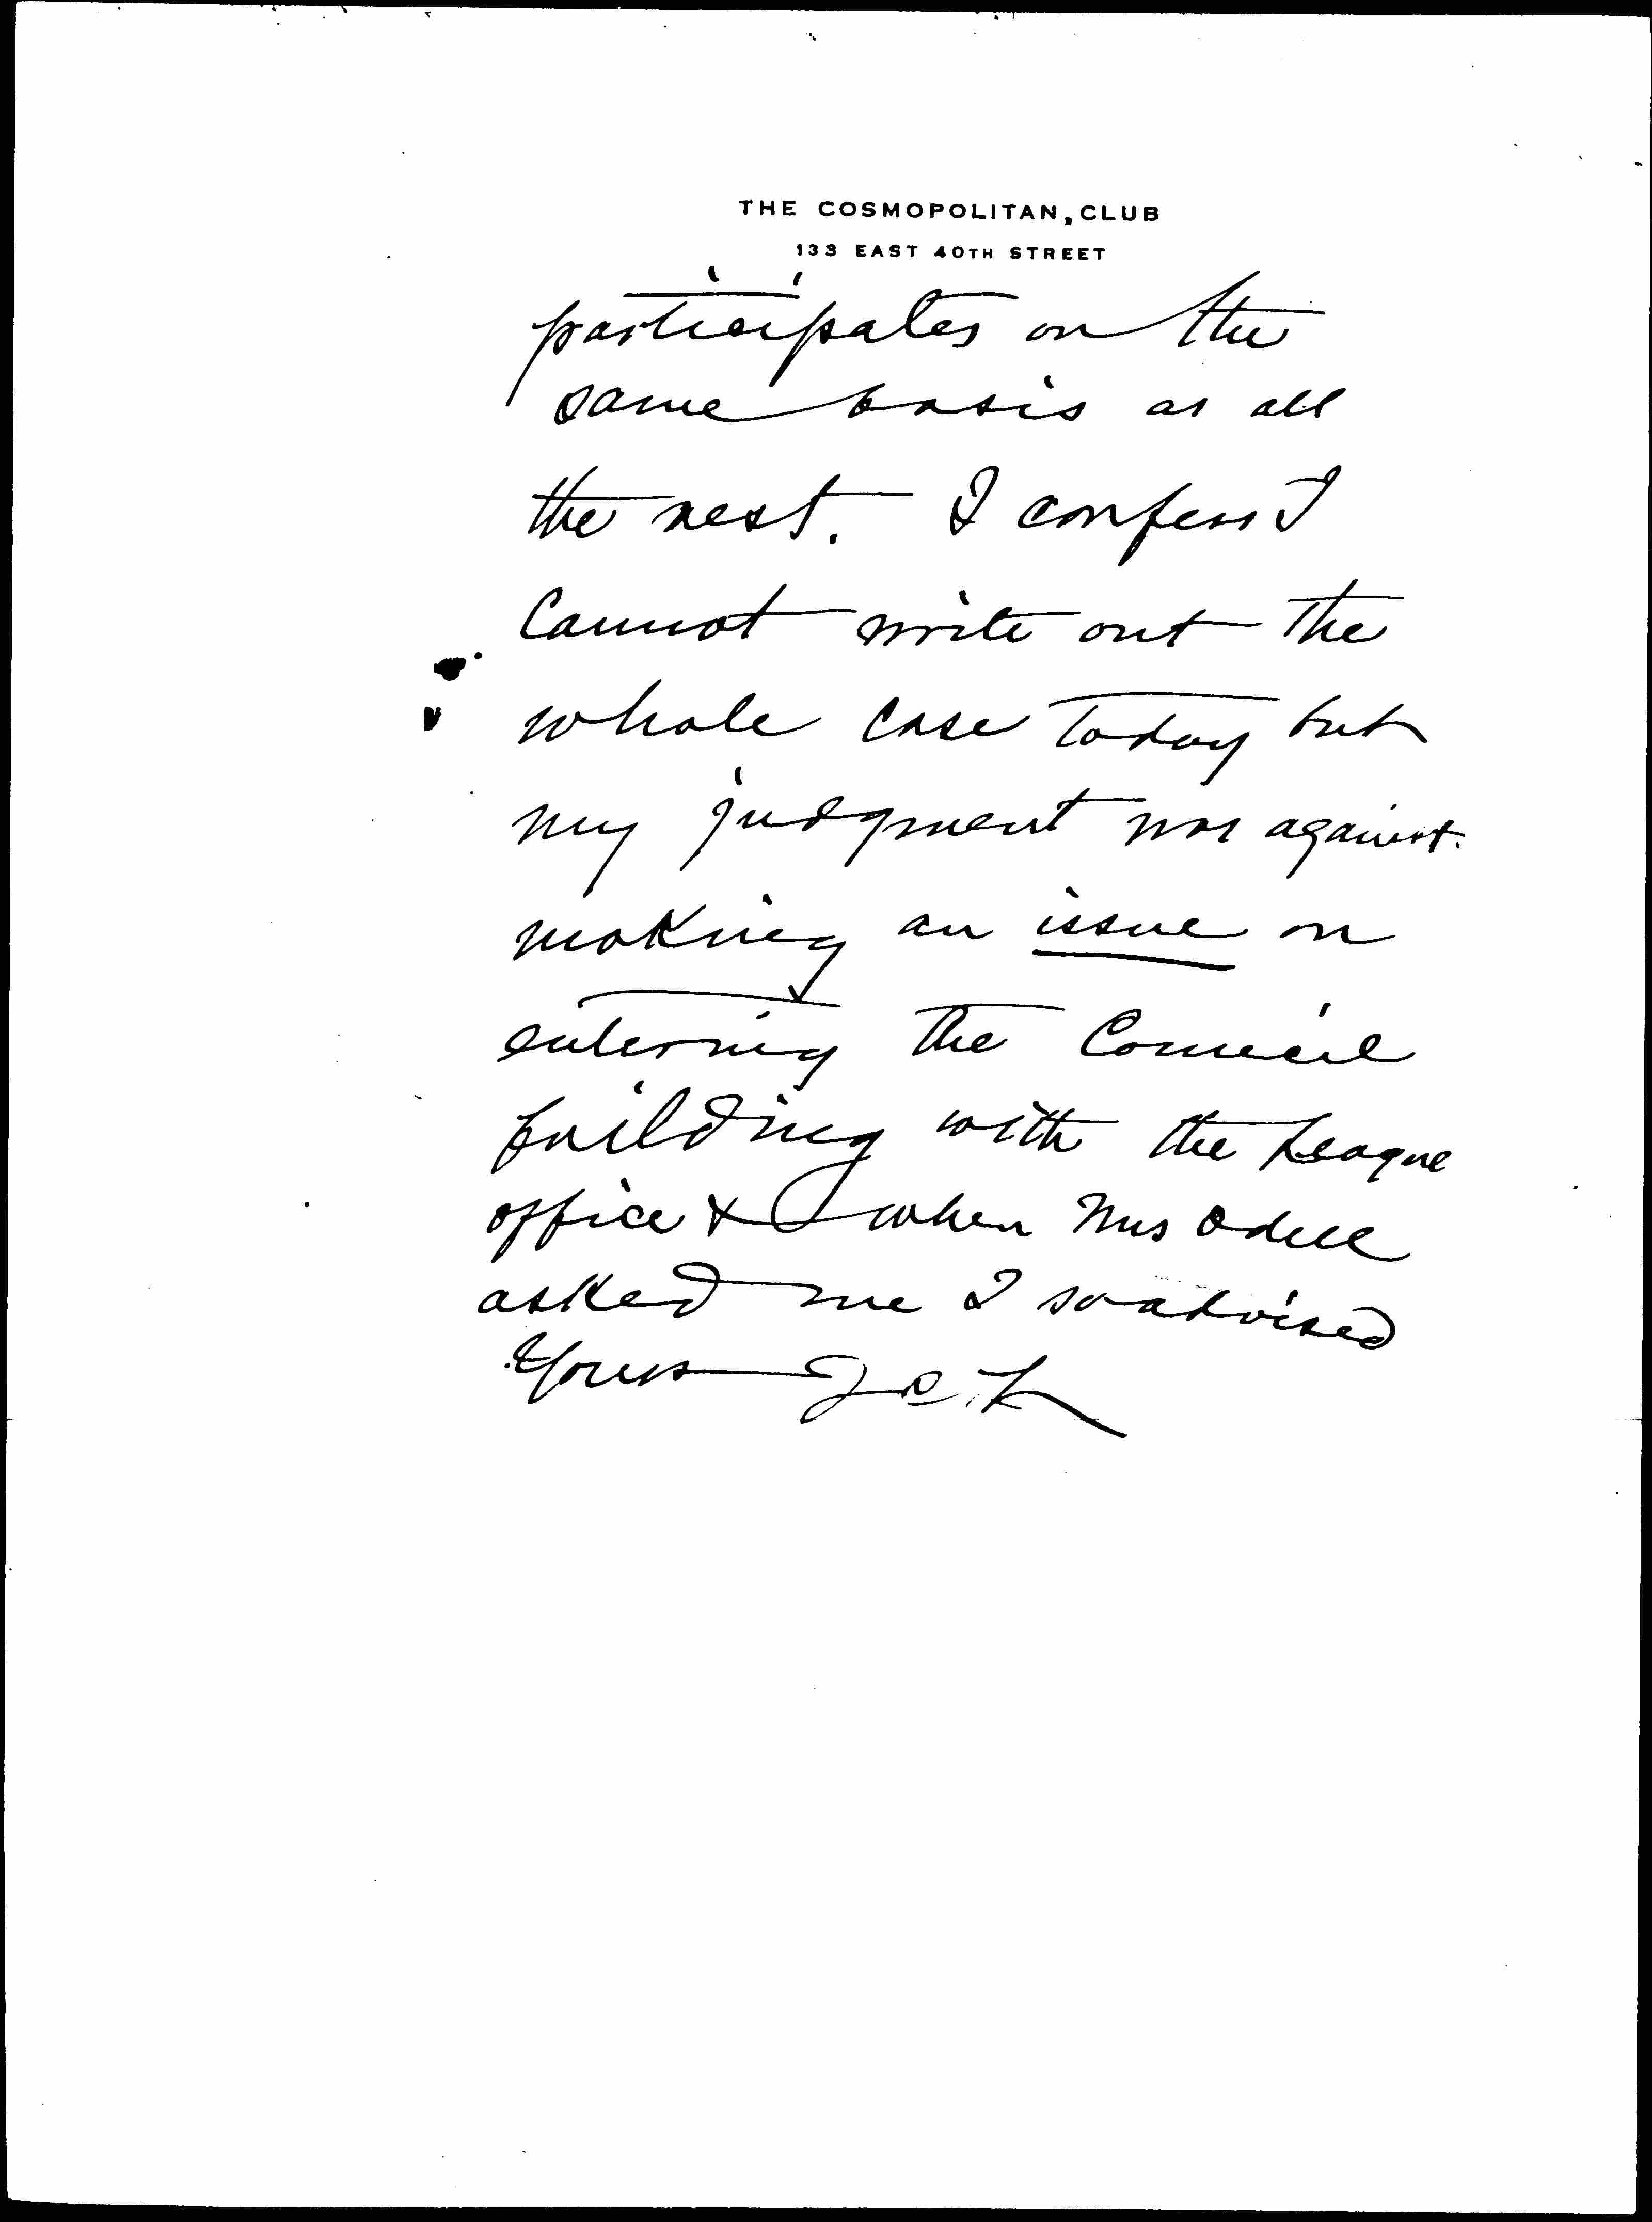 THE COSMOPOLITAN, CLUB
133 EAST 40TH STREET
participates on the
same basis as all
the rest. I confess I
Cannot write out the
whole case today but
my judgment was against
making an issue on
entering the Council
building with the League
office & when Mrs Odell
asked me I so advised
Yours